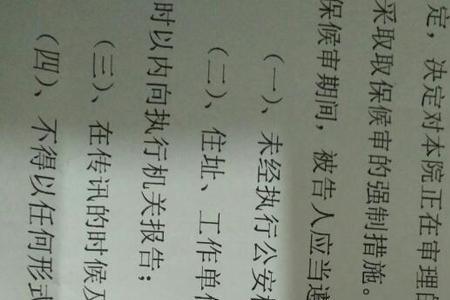 定，决定对本院正在审理的
采取取保候审的强制措施。
保候审期间，被告人应当遵
（一）、未经执行公安机
（二）、住址、工作单位
时以内向执行机关报告；
（三）、在传讯的时候及
（四）、不得以任何形式